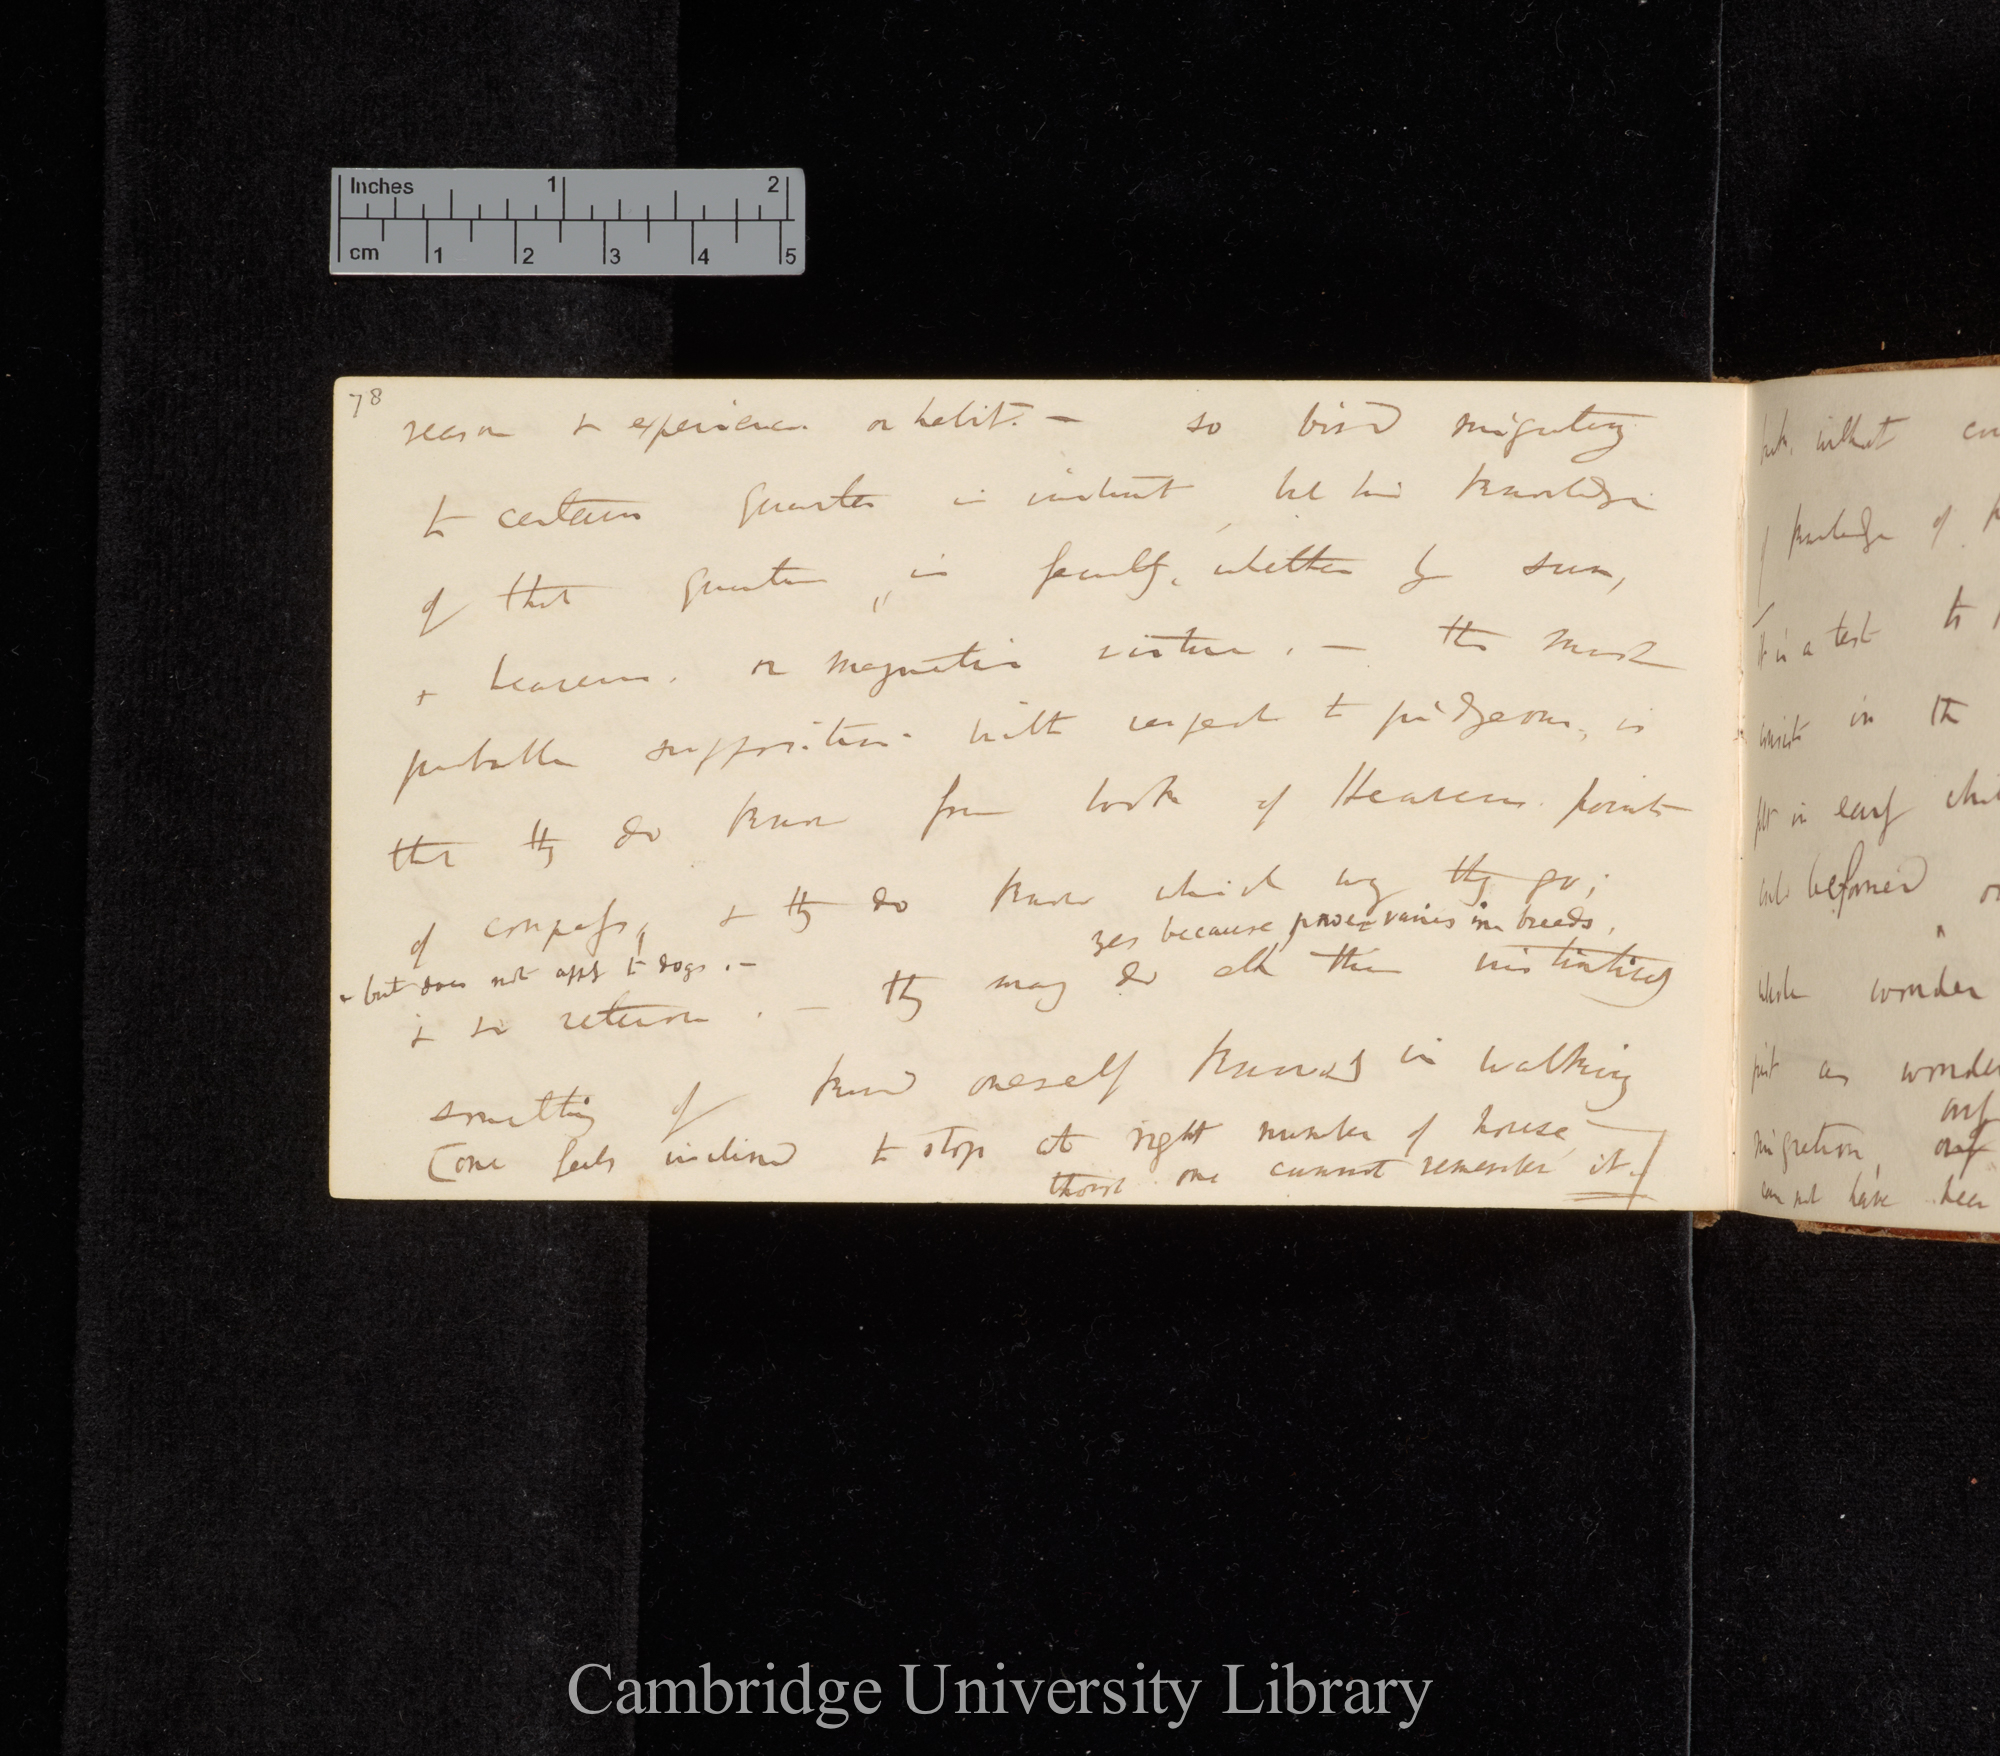 Inches 1 2
cm 1 2 3 4 5
78
reason & experience or habit. — so bird migrating
to certain quarter is instinct, but his knowledge
of that quarter is faculty, whether by sun,
& heavens. or magnetic virtue. — The most
probable supposition with respect to pidgeons, is
that they do know from look of Heavens. points
of compass, & they do know which way they go;
yes because power varies in breeds,
& but does not apply to dogs. —
& so return. — they may do all this instinctively
something of kind oneself knows in walking
(one feels inclined to stop at right number of house,
though one cannot remember it.)
but, without
knowledge of
it is a test to
consists in the
in early
performed
whole wonder
just as wonder
only
migration, only
can not have been
Cambridge University Library